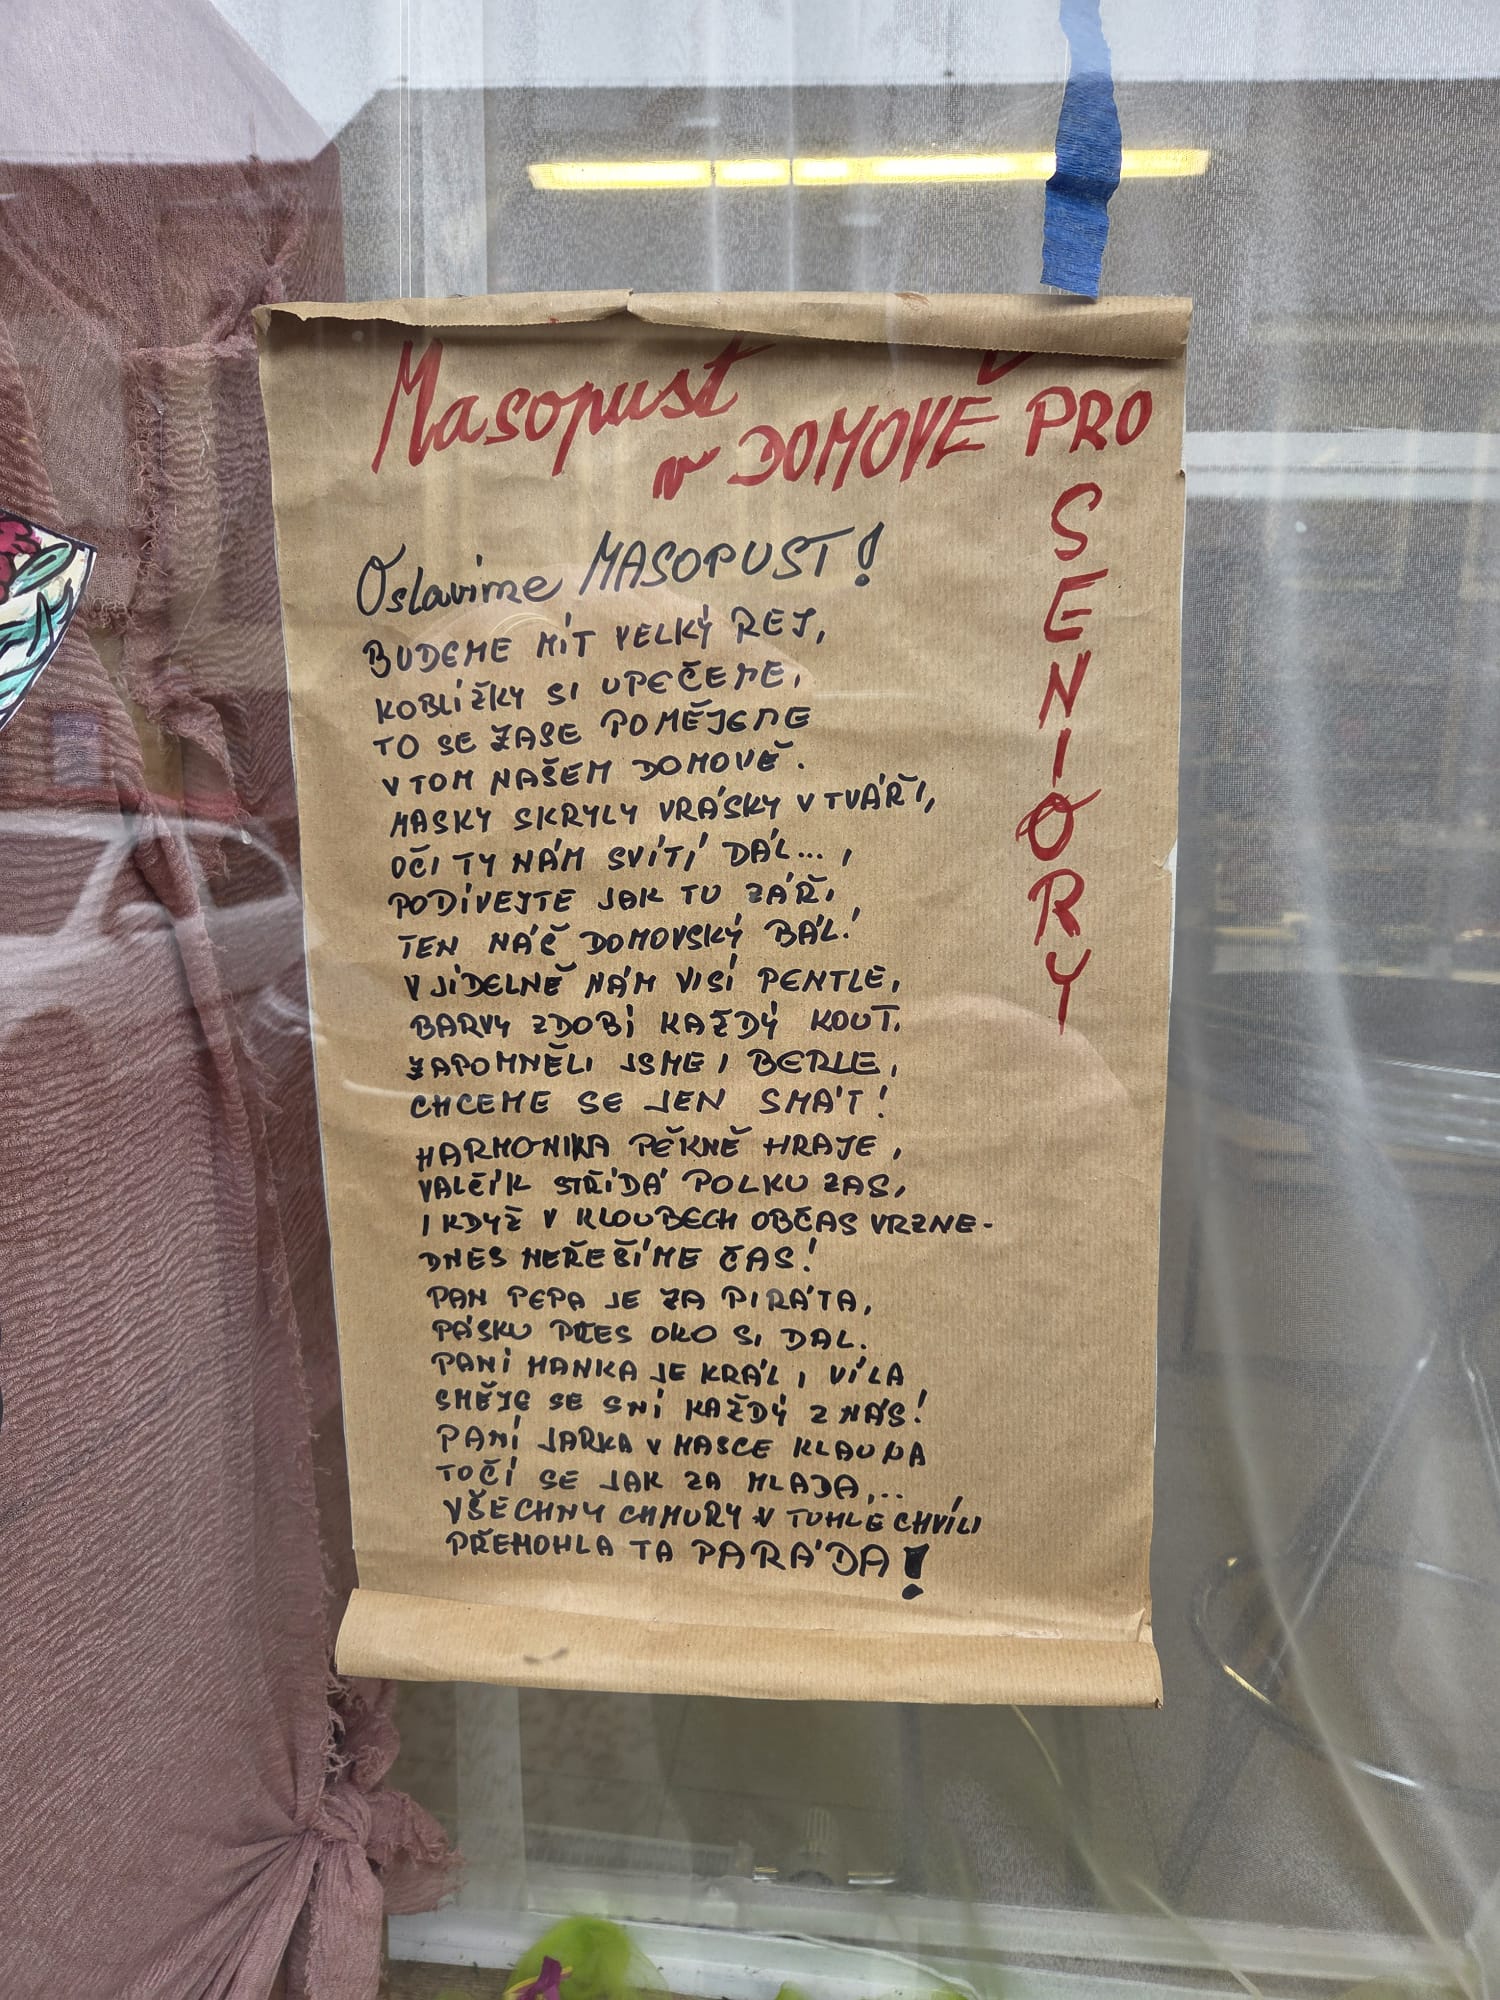 Masopust
v DOMOVĚ PRO
SENIORY
Oslavíme MASOPUST!
BUDEME MÍT VELKÝ REJ,
KOBLÍŽKY SI UPEČEME,
TO SE ZASE POMĚJEME
V TOM NAŠEM DOMOVĚ.
MASKY SKRYLY VRÁSKY V TVÁŘI,
OČI TY NÁM SVÍTÍ DÁL...,
PODÍVEJTE JAK TU ZÁŘÍ
TEN NÁŠ DOMOVSKÝ BÁL!
V JÍDELNĚ NÁM VISÍ PENTLE,
BARVY ZDOBÍ KAŽDÝ KOUT.
ZAPOMNĚLI JSME I BERLE,
CHCEME SE JEN SMÁT!
HARMONIKA PĚKNĚ HRAJE,
VALČÍK STŘÍDÁ POLKU ZAS,
I KDYŽ V KLOUBECH OBČAS VRZNE-
DNES NEŘEŠÍME ČAS!
PAN PEPA JE ZA PIRÁTA,
PÁSKU PŘES OKO SI DAL.
PANÍ HANKA JE KRÁL I VÍLA
SMĚJE SE SNÍ KAŽDÝ Z NÁS!
PANÍ JARKA V MASCE KLAUNA
TOČÍ SE JAK ZA MLADA,..
VŠECHNY CHMURY V TUHLE CHVÍLI
PŘEMOHLA TA PARÁDA!